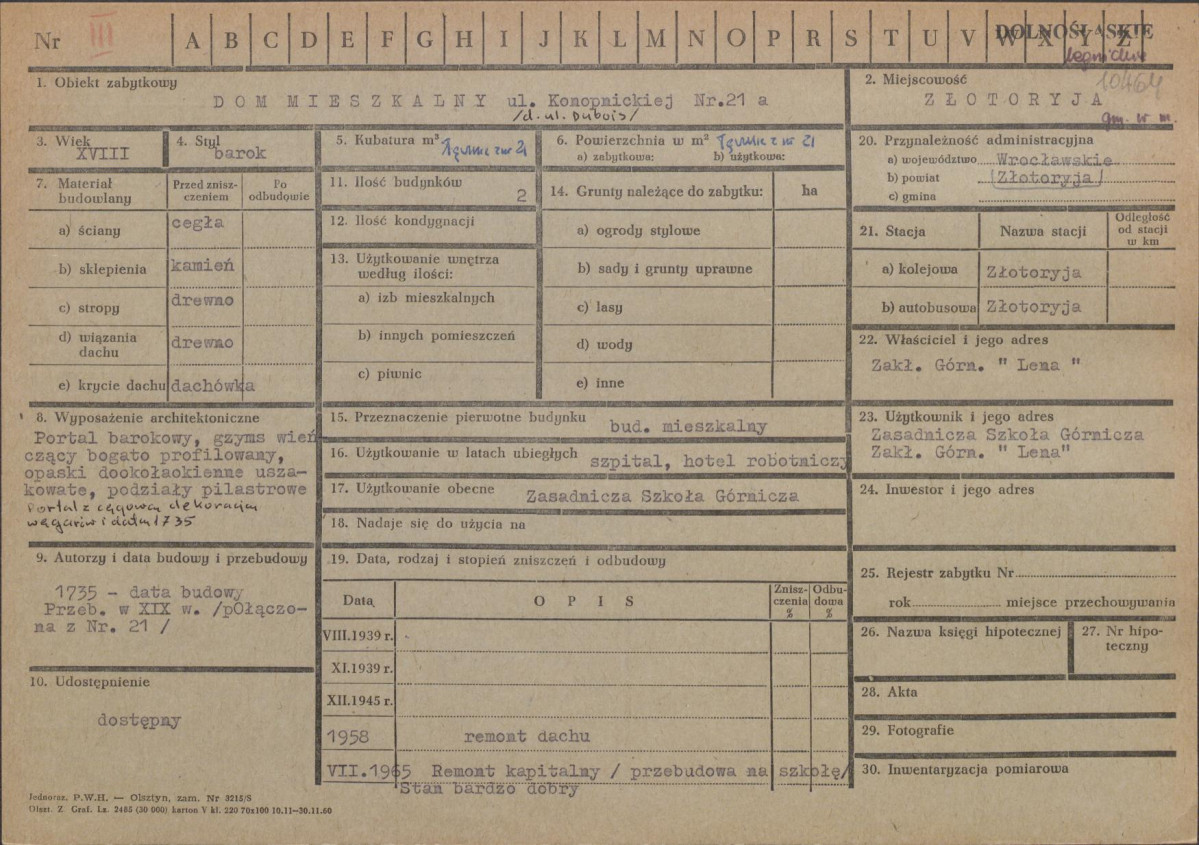 Nr III A B C D E F G H I J K L M N O P R S T U V W X Y Z
DOLNOŚLĄSKIE
legnickie
10464
1. Obiekt zabytkowy
DOM MIESZKALNY ul. Konopnickiej Nr.21 a
/d.ul. Dubois/
2. Miejscowość
ZŁOTORYJA
gm. w m.
3. Wiek
XVIII
4. Styl
barok
5. Kubatura m³
łącznie z nr 21
6. Powierzchnia w m² łącznie z nr 21
a) zabytkowa: b) użytkowa:
7. Materiał budowlany
Przed zniszczeniem
Po odbudowie
a) ściany cegła
b) sklepienia kamień
c) stropy drewno
d) wiązania dachu drewno
e) krycie dachu dachówka
8. Wyposażenie architektoniczne
Portal barokowy, gzyms wień
czący bogato profilowany,
opaski dookołaokienne usza-
kowate, podziały pilastrowe
Portal z cęgową dekoracją
węgarów i datą 1735
9. Autorzy i data budowy i przebudowy
1735 - data budowy
Przeb. w XIX w. /pOłączo-
na z Nr. 21 /
10. Udostępnienie
dostępny
11. Ilość budynków
2
12. Ilość kondygnacji
13. Użytkowanie wnętrza
według ilości:
a) izb mieszkalnych
b) innych pomieszczeń
c) piwnic
14. Grunty należące do zabytku: ha
a) ogrody stylowe
b) sady i grunty uprawne
c) lasy
d) wody
e) inne
15. Przeznaczenie pierwotne budynku bud. mieszkalny
16. Użytkowanie w latach ubiegłych szpital, hotel robotniczy
17. Użytkowanie obecne Zasadnicza Szkoła Górnicza
18. Nadaje się do użycia na
19. Data, rodzaj i stopień zniszczeń i odbudowy
Data O P I S Zniszczenia % Odbudowa %
VIII.1939 r.
XI.1939 r.
XII.1945 r.
1958 remont dachu
VII.1965 Remont kapitalny / przebudowa na szkołę/
Stan bardzo dobry
20. Przynależność administracyjna
a) województwo Wrocławskie
b) powiat (Złotoryja)
c) gmina
21. Stacja Nazwa stacji Odległość od stacji w km
a) kolejowa Złotoryja
b) autobusowa Złotoryja
22. Właściciel i jego adres
Zakł. Górn. " Lena "
23. Użytkownik i jego adres
Zasadnicza Szkoła Górnicza
Zakł. Górn. " Lena"
24. Inwestor i jego adres
25. Rejestr zabytku Nr
rok miejsce przechowywania
26. Nazwa księgi hipotecznej
27. Nr hipoteczny
28. Akta
29. Fotografie
30. Inwentaryzacja pomiarowa
Jednoraz. P.W.H. — Olsztyn, zam. Nr 3215/S
Olszt. Z. Graf. Lz. 2485 (30 000) karton V kl. 220 70x100 10.11—30.11.60